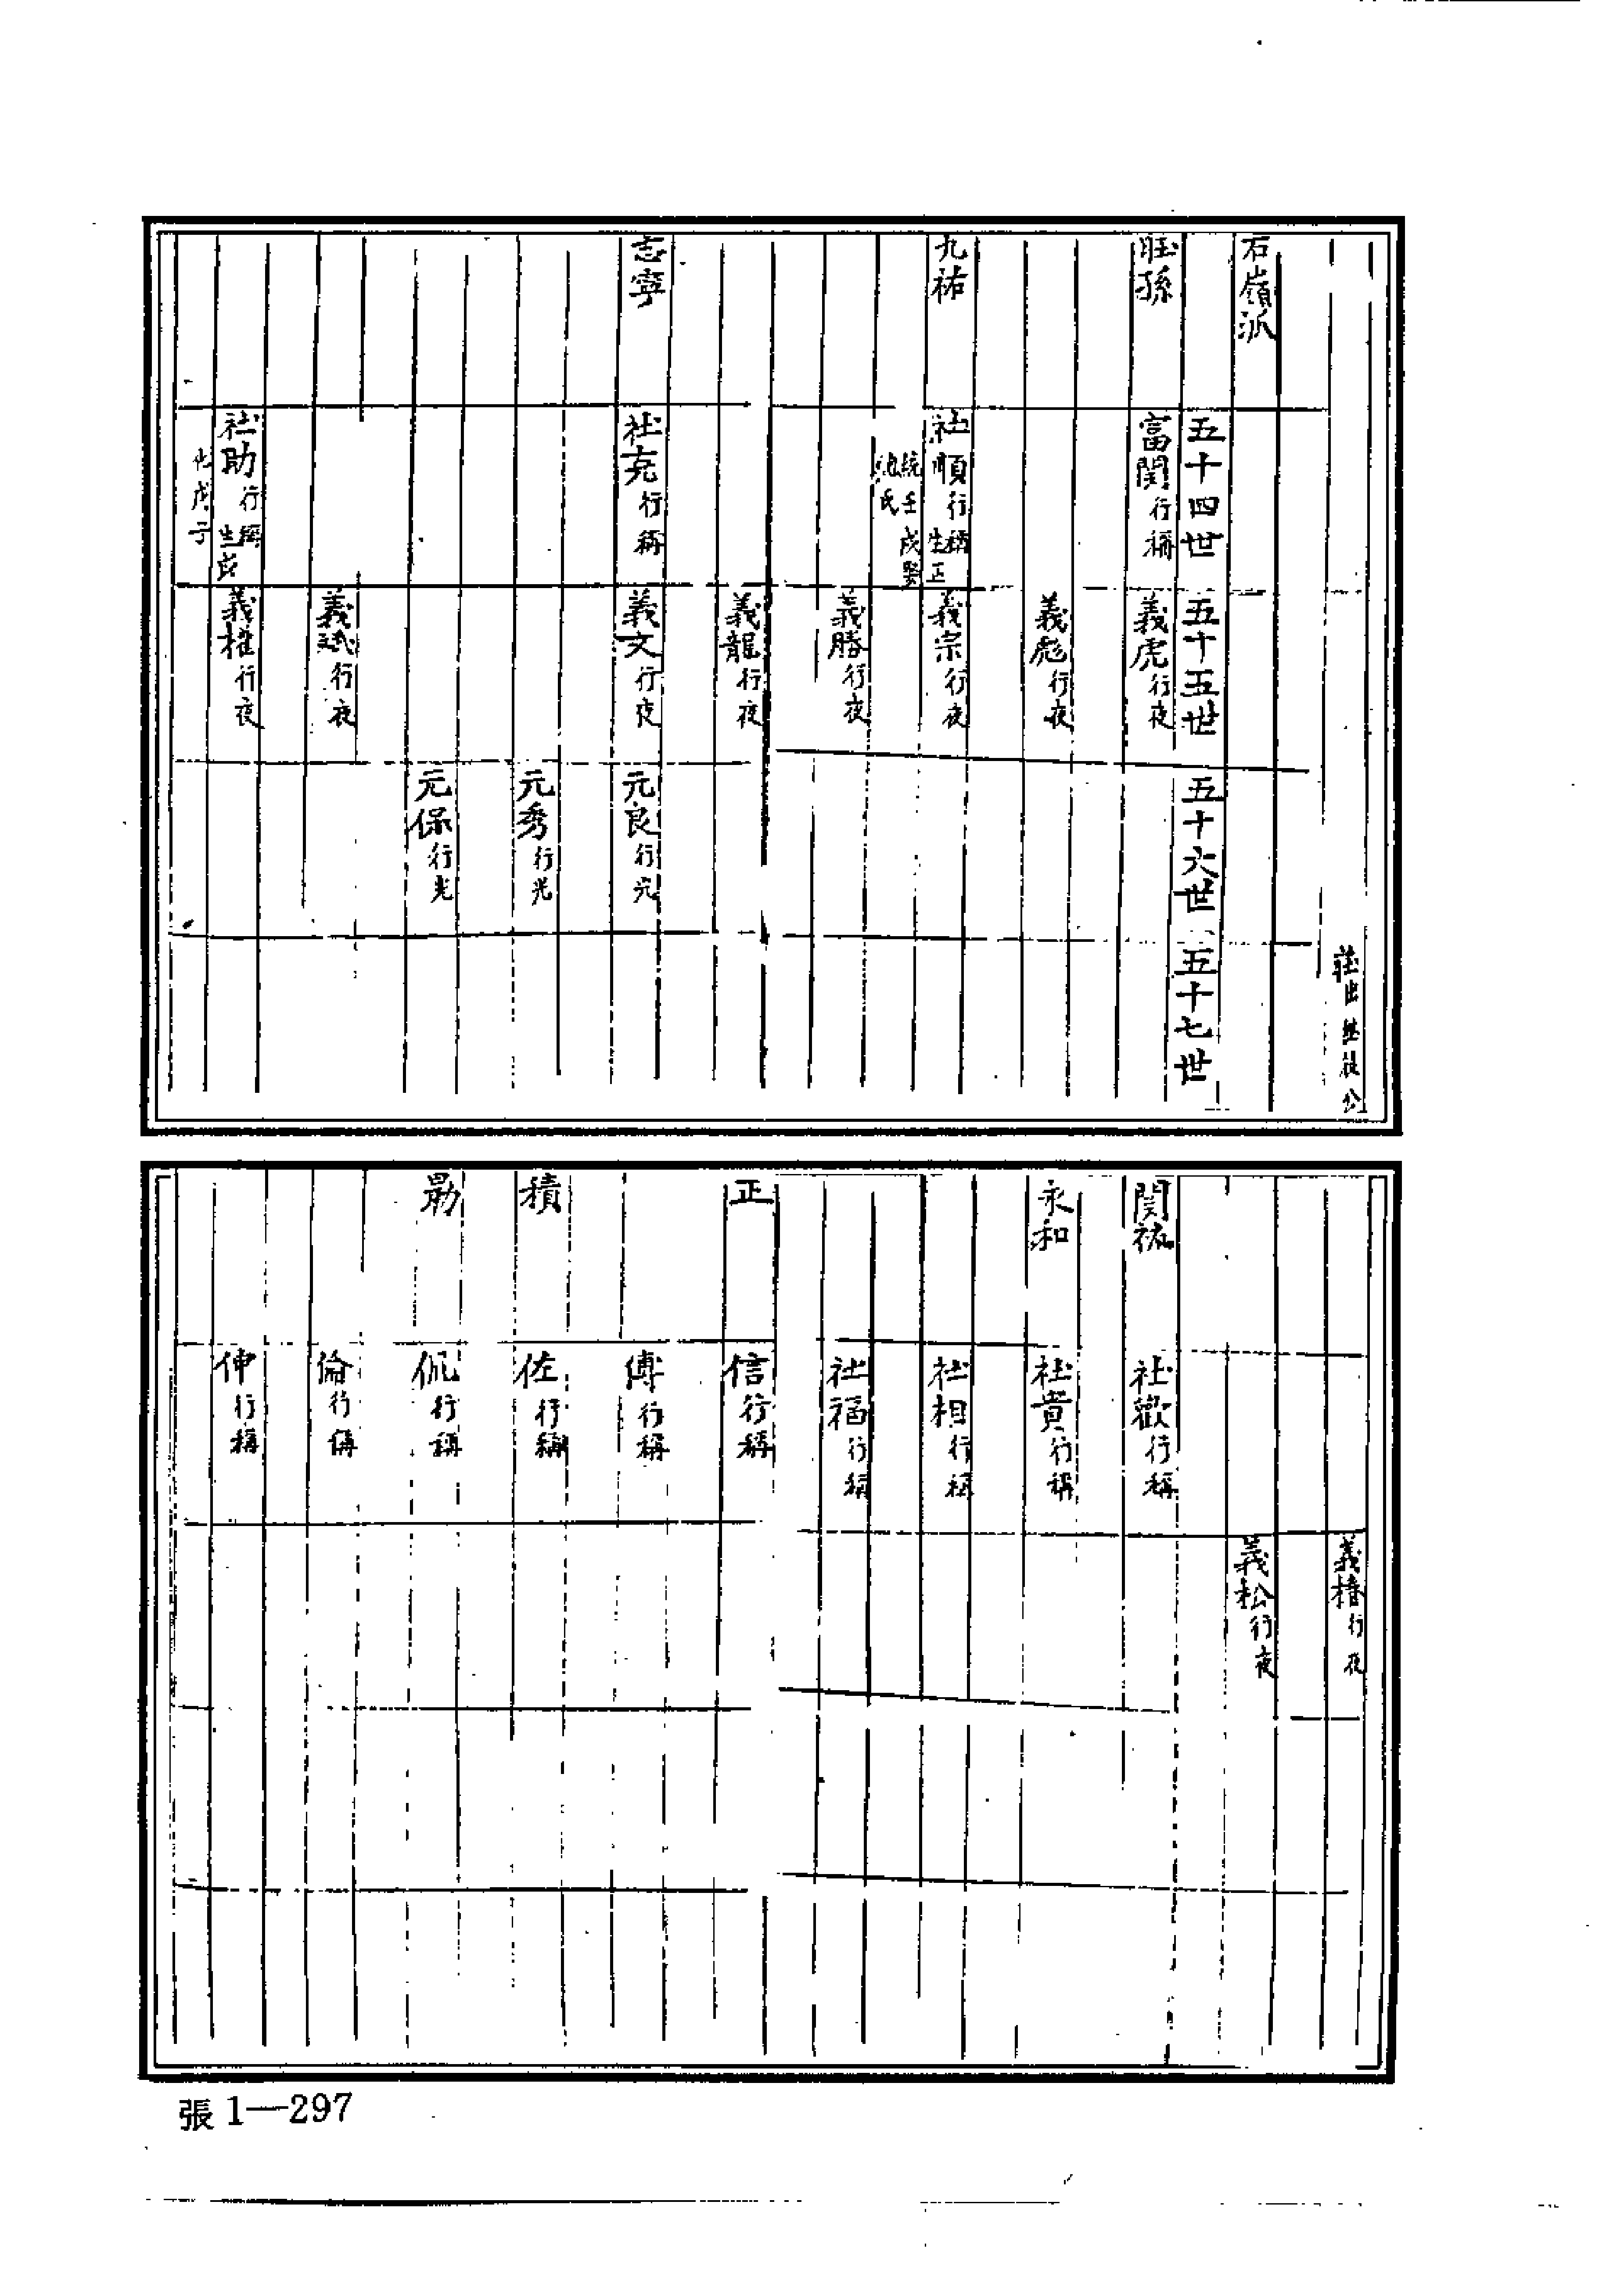 石嶺派
五十四世
五十五世
五十六世
五十七世
旺孫
富関行稱
義虎行夜
義彪行夜
九祐
社順行稱生正
統壬戌娶
池氏
義宗行夜
義勝行夜
義龍行夜
志寧
社克行稱
義文行夜
元良行光
元秀行光
元保行光
義斌行夜
社助行稱生成
化戊子
義權行夜
義椿行夜
義松行夜
関祐
社歡行稱
永和
社貴行稱
社相行稱
社福行稱
正
信行稱
傅行稱
積
佐行稱
勗
侃行稱
倫行稱
伸行稱
張1—297